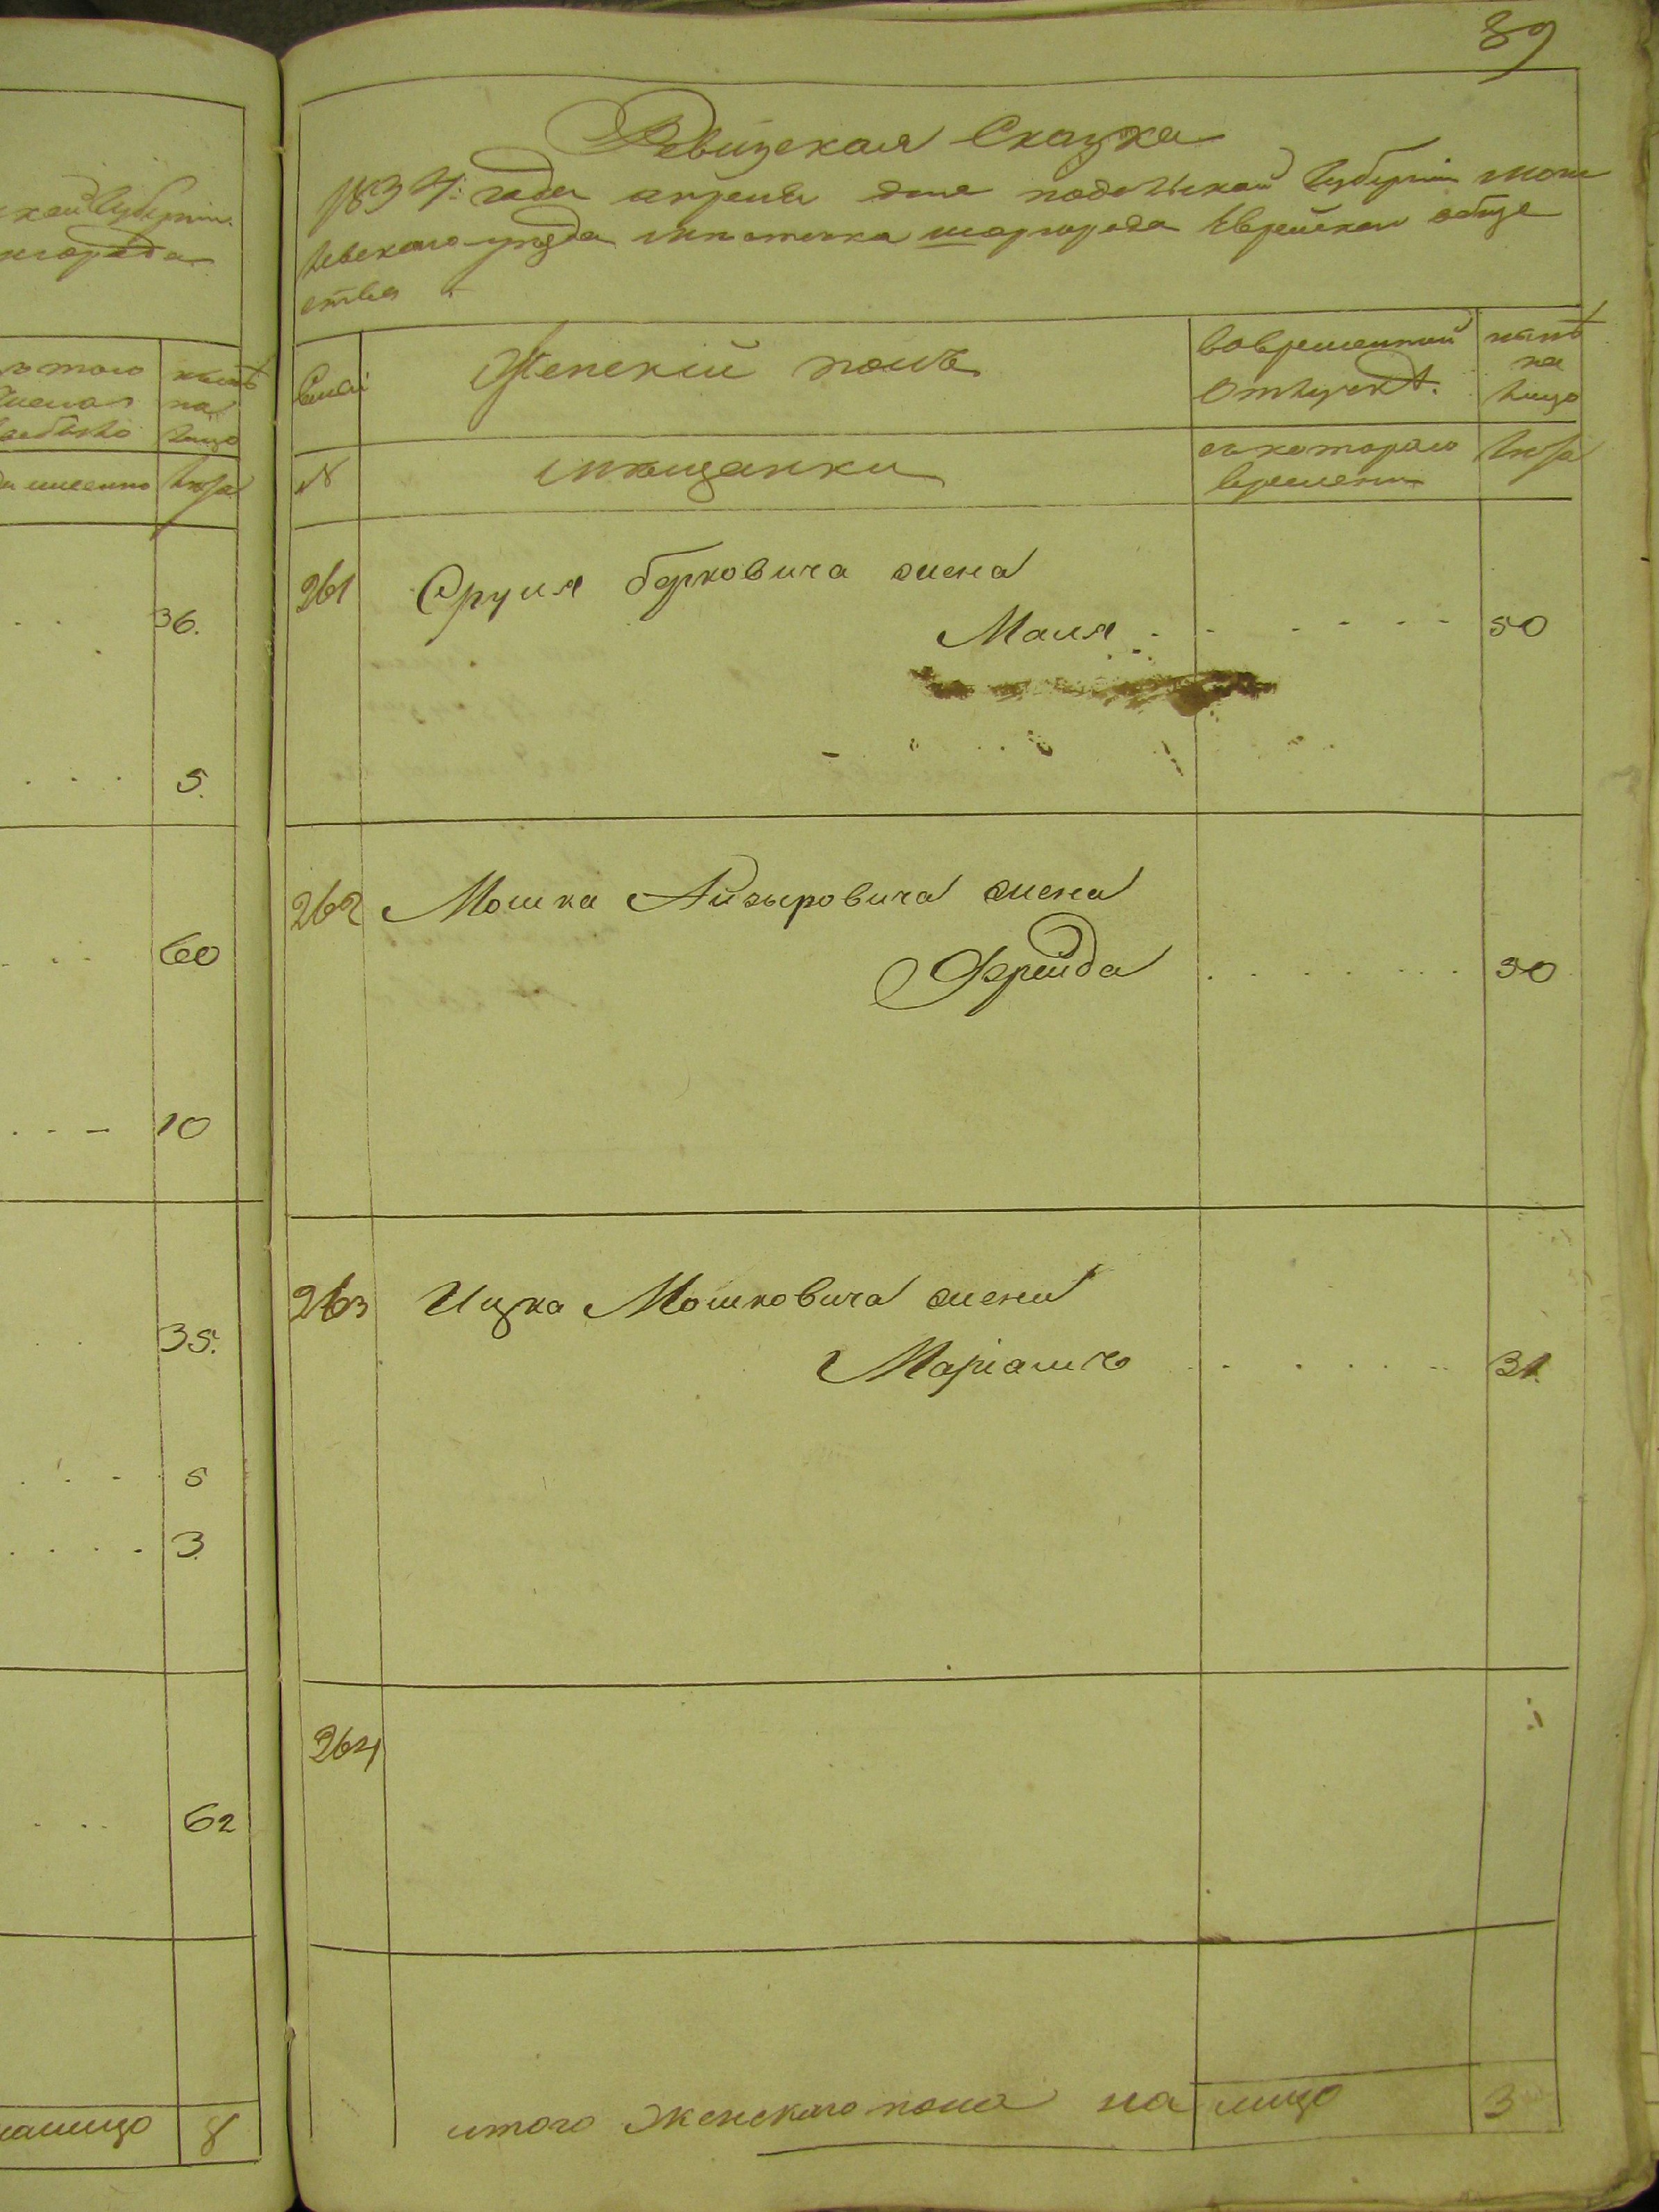 39
Ревизская Сказка
1834: года апреля дня подольской Губернии моги
левскаго уезда местечка шаргорода Еврейскаго обще
ства
Семьи
Женскій полъ
вовременной отлучкѣ.
нынѣ на лицо
№
мѣщанки
съ котораго времени
лѣта
261 Сруля берковича жена
Маля 50
262 Мошка Айзыровича жена
Фрейда 50
263 Ицка Мошковича жена
Маріамъ 31.
264
итого женскаго пола на лицо 3
ской Губерніи.
города
нынѣ на лицо
лѣта
36.
5.
60
10
35.
5
3.
62
налицо 8